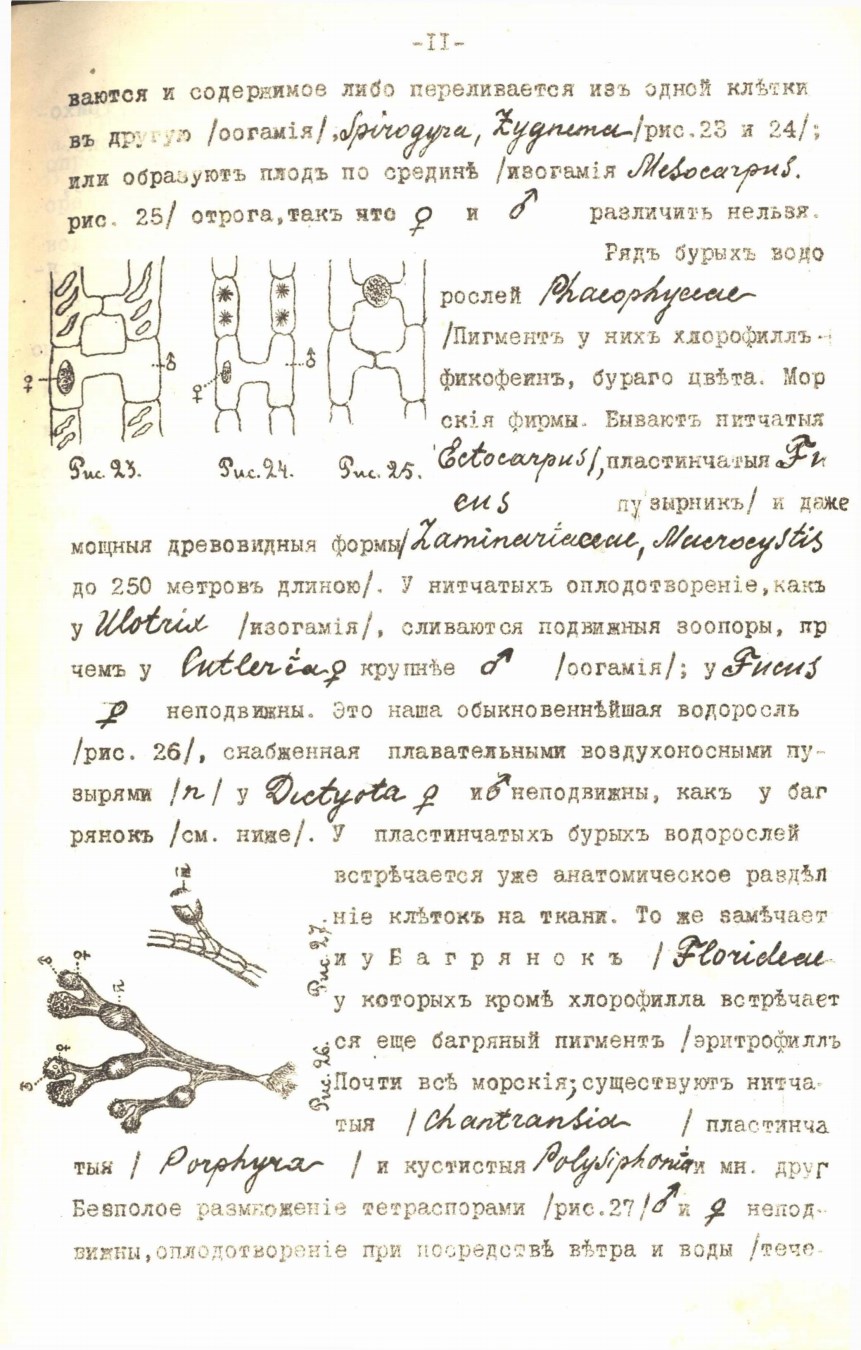 -II-
ваются и содержимое либо переливается изъ одной клѣтки
въ другую /оогамія/,Spirogyra, Zygnema /рис.23 и 24/;
или образуютъ плодъ по срединѣ /изогамія Mesocarpus.
рис. 25/ отрога,такъ что ♀ и ♂ различить нельзя.
Рядъ бурыхъ водо
рослей Phaeophyceae
/Пигментъ у нихъ хлорофиллъ-
фикофеинъ, бураго цвѣта. Мор
скія фирмы. Бываютъ нитчатыя
Ectocarpus/,пластинчатыя Fu
cus пузырникъ/ и даже
♀ ♂ ♀ ♂
Рис. 23. Рис. 24. Рис. 25.
мощныя древовидныя формы/Laminariaceae, Macrocystis
до 250 метровъ длиною/. У нитчатыхъ оплодотвореніе,какъ
у Ulotrix /изогамія/, сливаются подвижныя зоопоры, пр
чемъ у Cutleria ♀ крупнѣе ♂ /оогамія/; у Fucus
♀ неподвижны. Это наша обыкновеннѣйшая водоросль
/рис. 26/, снабженная плавательными воздухоносными пу-
зырями /п/ у Dictyota ♀ и ♂ неподвижны, какъ у баг
рянокъ /см. ниже/. У пластинчатыхъ бурыхъ водорослей
встрѣчается уже анатомическое раздѣл
ніе клѣтокъ на ткани. То же замѣчает
и у Б а г р я н о к ъ / Florideae
у которыхъ кромѣ хлорофилла встрѣчает
ся еще багряный пигментъ /эритрофиллъ
Почти всѣ морскія; существуютъ нитча-
тыя / Chantransia / пластинча
Рис. 27.
Рис. 26.
♂ ♀ п
♂ ♀
тыя / Porphyra / и кустистыя Polysiphonia и мн. друг
Безполое размноженіе тетраспорами /рис.27/ ♂ и ♀ непод-
вижны,оплодотвореніе при посредствѣ вѣтра и воды /тече-